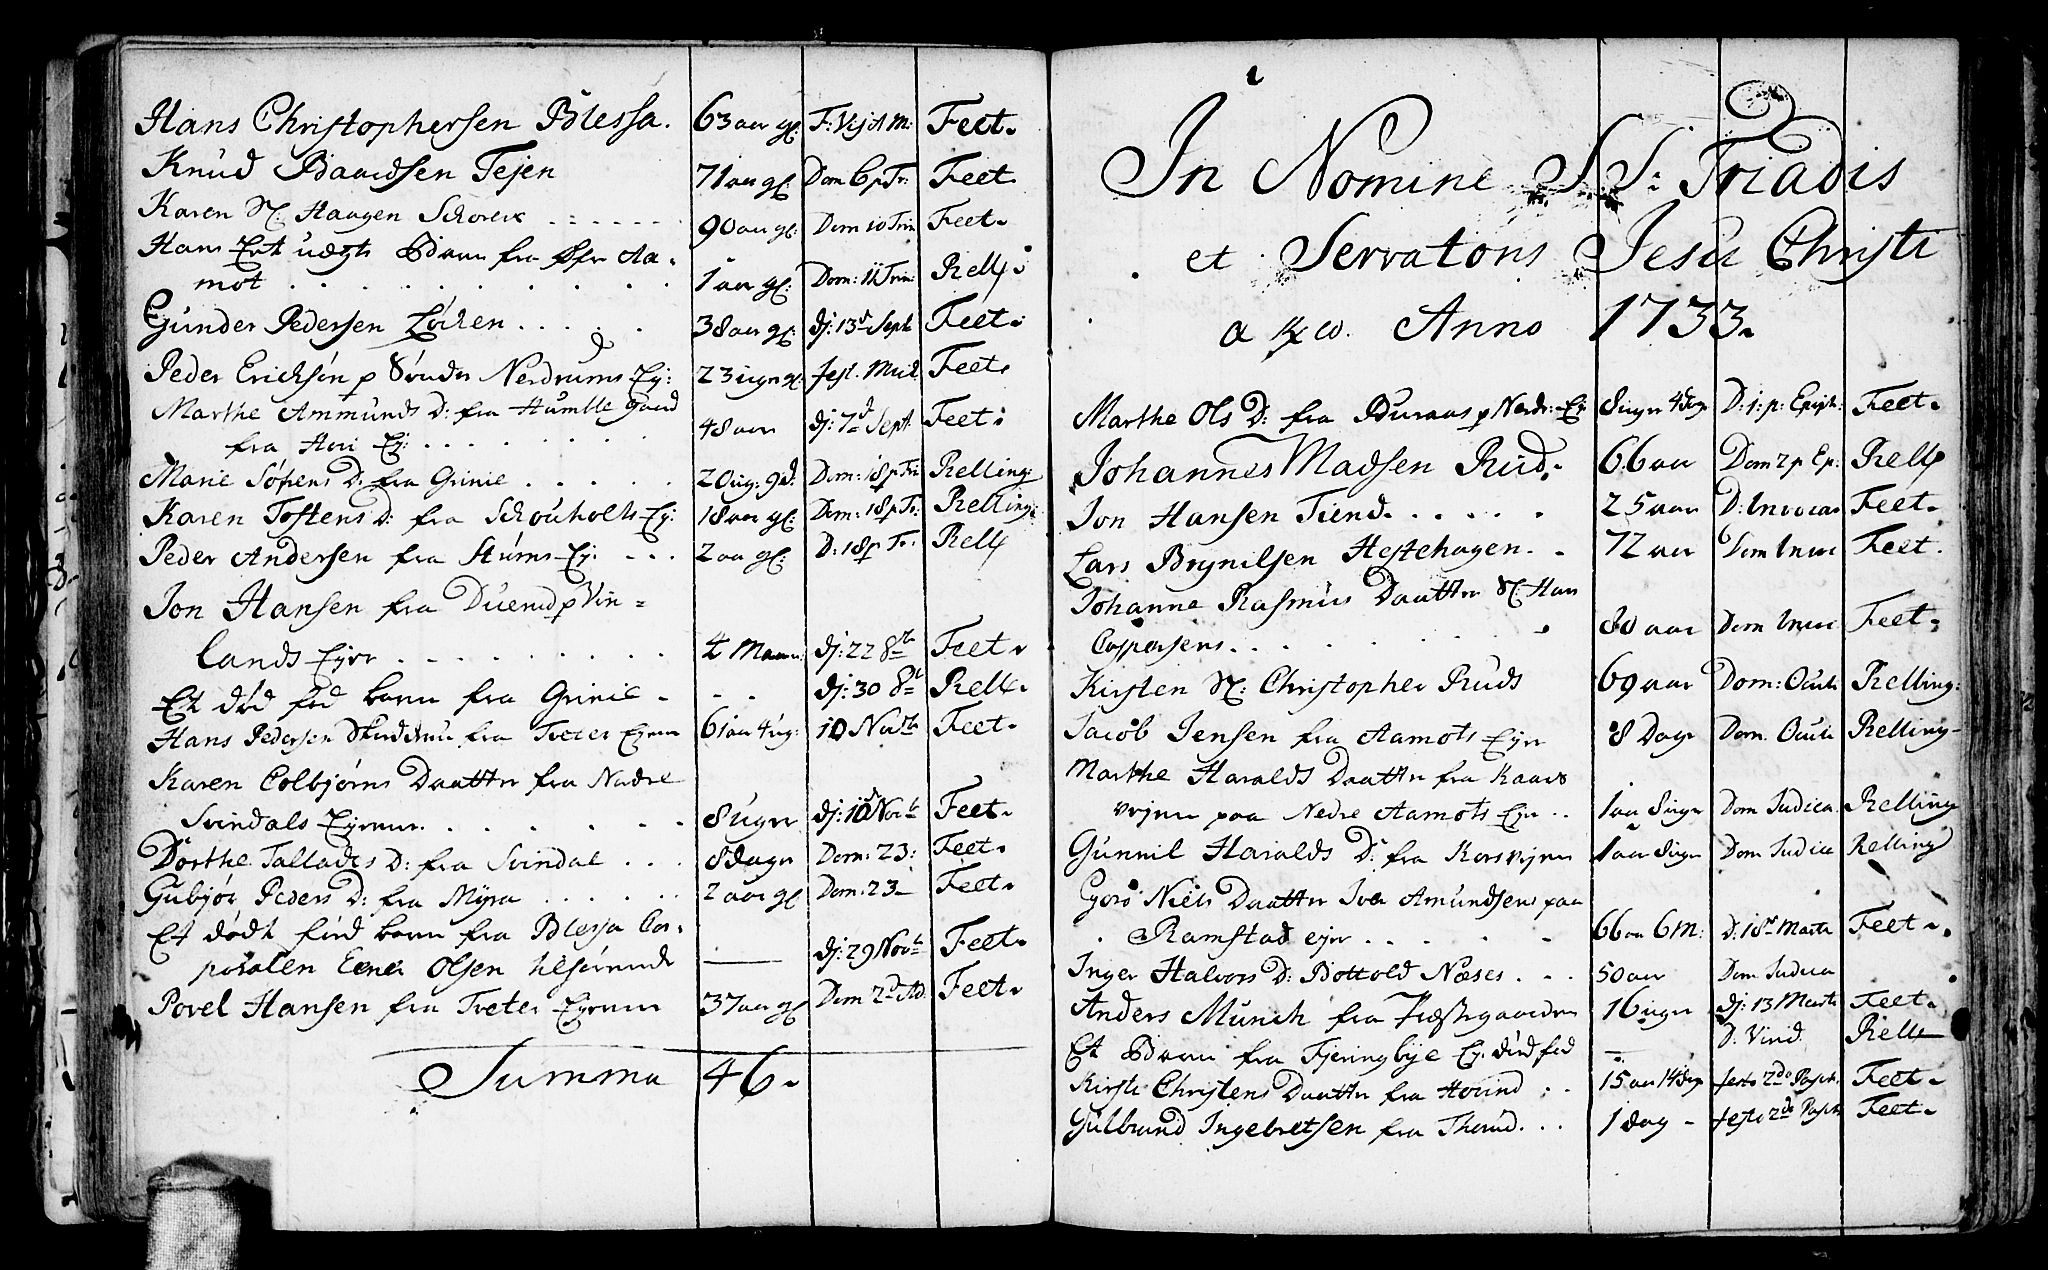 Hans Christophersen Blessa. 63 aar gl: F: Vis: M: Feet.
Knud Baardsen Tejen 71 aar gl: Dom 6 p Tr: Feet.
Karen Sl: Haagen 90 aar gl: Dom 10 Trin Feet.
Hans Ert uægte Barn fra Øfre Aa-
mot 1 aar gl: Dom: 11 Trin: Relly:
Gunder Pedersen Løcken 38 aar gl: dj: 13d Sept Feet:
Peder Ericksøn p Sønder Nerdrums Ej: 23 uger gl: fest. Mich Feet.
Marthe Ammunds D: fra Humlle gaard
fra Ej: 48 aar dj: 7d Sept Feet:
Marie D: fra Grinie 20 ug: 9 d: Dom: 18 p Tri Relling:
Karen Tostens D: fra Schouholts Ej: 18 aar gl: Dom: 18 p Tr: Relling:
Peder Andersen fra Sturns Ej: 2 aar gl: D: 18 p Tr: Rell
Jon Hansen fra Duerud p Vin=
lands Ejer 4 dj: 22 8br Feet.
Et død fød barn fra Grinie - - dj: 30 8br Rell.
Hans Pedersen fra Treter Ejerne 61 aar 4 ug: 10 Feet.
Karen Colbjørns Daatter fra Nædre
Svindals Ejerne 8 uger dj: 10d Novb Feet.
Dorthe D: fra Svindal 8 dager Dom: 23: Feet.
Gubjør Peders D: fra Myra 2 aar gl Dom: 23 Feet.
Et dødt fød barn fra Blessa Cor-
poralen Olsen dj: 29 Novb Feet.
Povel Hansen fra Treter Ejerne 37 aar gl Dom 2d Ad. Feet.
Summa 46.
In Nomine S S: Triadis
et Servatoris Jesu Christi
Anno 1733.
Marthe Ols D: fra Buraas p Nerdr: Ej 8 uger 4 dag D: 1: p: Epiph: Feet.
Johannes Madsen Rud. 66 aar Dom 2 p Ep: Rell
Jon Hansen Tiend. 25 aar D: Invocav Feet.
Lars Brynilsen Hestehagen. 72 aar Dom Feet.
Johanne Rasmus Daatter Sl: Han
Caspersens. 80 aar Dom Feet.
Kirsten Sl: Christopher Ruds 69 aar Dom: Oculi Relling:
Jacob Jensen fra Aamots Ejer 8 Dage Dom. Oculi Relling
Marthe Haralds Daatter fra Kaars
vejen paa Nedre Aamots Ejer 1 aar 8 uger Dom Judica Relling
Gunnil Haralds D: fra Korsvejen 1 aar 8 uger Dom Judica Relling
Goro Niels Daatter Iver Amundsens paa
Ramstad ejer 66 aar 6 M: D: 18 Marti Feet.
Inger Halvors D: Bottold Næses 50 aar Dom Judica
Anders Munch fra Præstegaarden 16 uger dj: 13 Marti Feet.
Et Barn fra Fjeringbye Ej: død fød — D: Virid. Rell
Kirsti Christens Daatter fra 15 aar 14 dag festo 2do Pasch. Feet.
Gulbrand Ingebretsen fra Thorud. 1 dag festo 2do Pasch Feet.